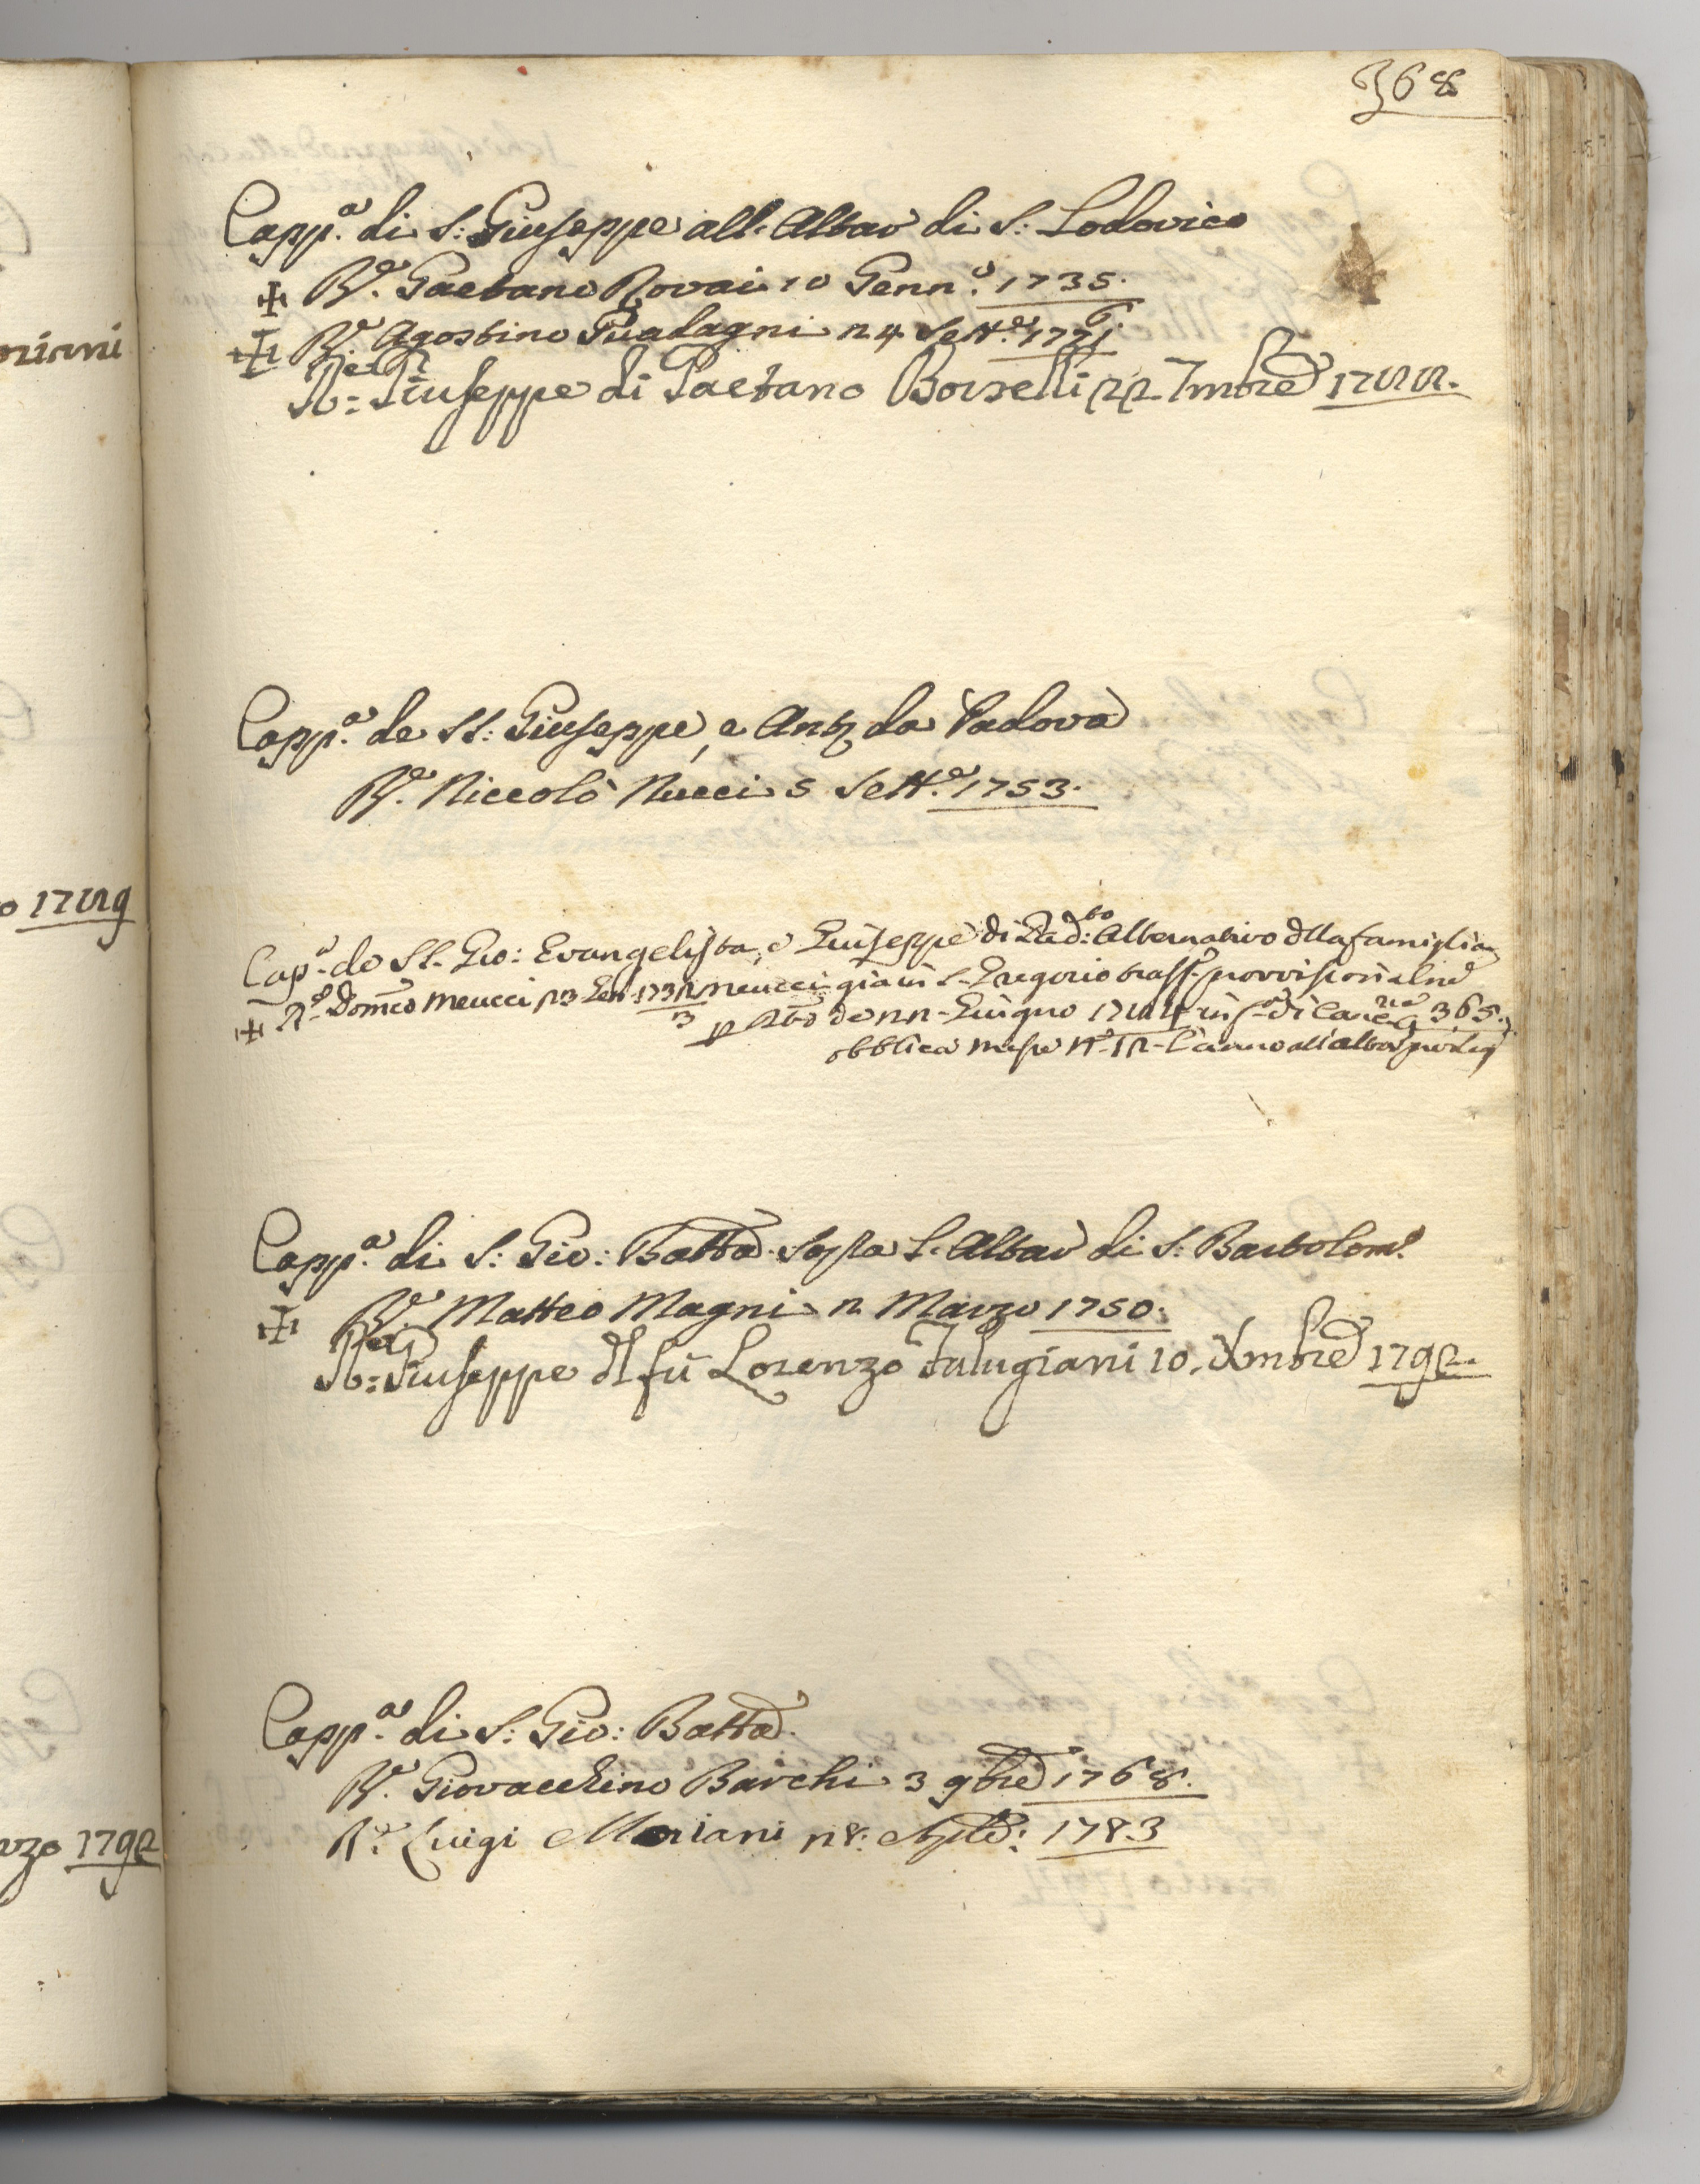 368
Capp.a di S: Giuseppe all'Altar di S: Lodovico
R.e Gaetano Rovai 10 Genn.o 1735.
R.e Agostino Gualagni 24 Sett.e 1771
R:e Giuseppe di Gaetano Borselli 22 7mbre 1788.
Capp.a de SS: Giuseppe, e Ant.o da Padova
R.e Niccolò Nucci 5 Sett.e 1753.
Cap.a de SS. Gio: Evangelista, e Giuseppe di Pad:to Alternativo dlla famiglia
R.e Domco Meucci 23 Gen. 1732/3 Meucci già in S. Gregorio trasf. provvisionalme
de 22 Giugno 1784 in di 365.
obblica messe N.o 12 l'anno all'altar
Capp.a di S: Gio: Batta. sopra l'Altar di S: Bartolom.o
R.e Matteo Magni 2 Marzo 1750.
R:e Giuseppe dl fu Lorenzo Falugiani 10. Xmbre 1792.
Capp.a di S: Gio: Batta.
R.e Giovacchino Barchi 3 9bre 1768.
R.e Luigi Mariani 28: Aple: 1783
niani
o 1789
rzo 1792